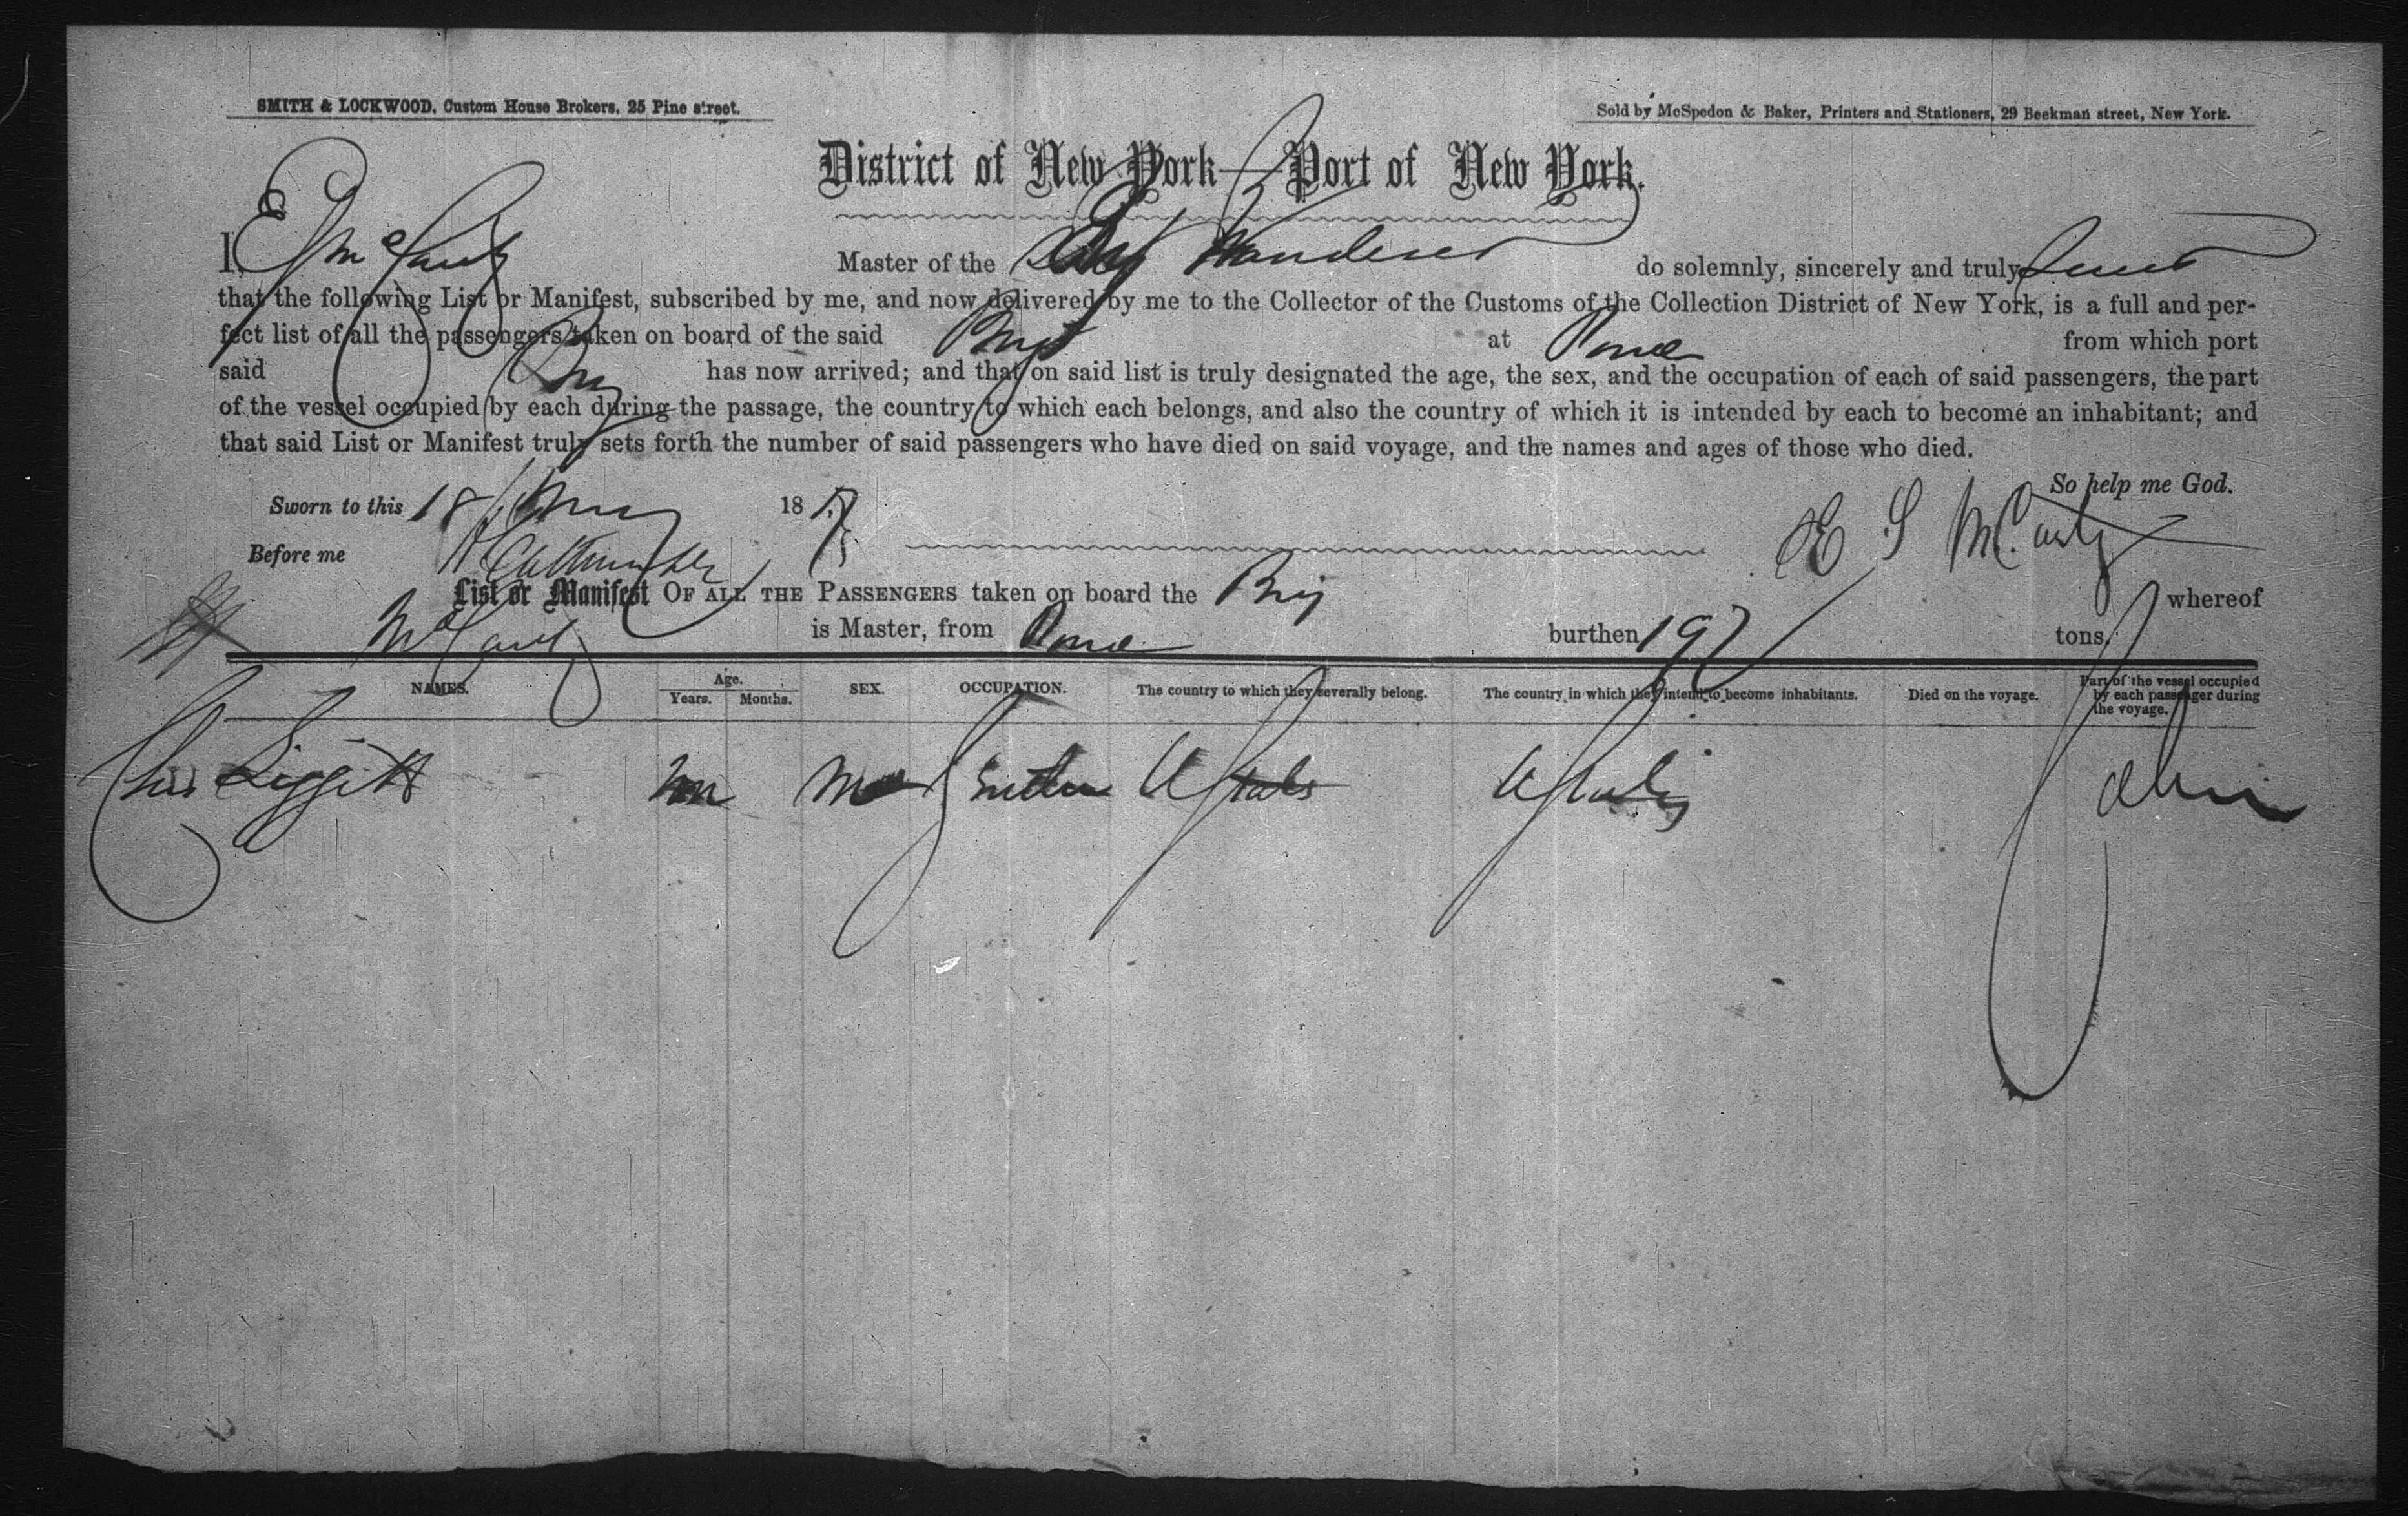 SMITH & LOCKWOOD, Custom House Brokers, 25 Pine street.
Sold by McSpedon & Baker, Printers and Stationers, 29 Beekman street, New York.
District of New York—Port of New York.
I, E S McCarty Master of the Brig Wanderer do solemnly, sincerely and truly swear
that the following List or Manifest, subscribed by me, and now delivered by me to the Collector of the Customs of the Collection District of New York, is a full and per-
fect list of all the passengers taken on board of the said Brig at Ponce from which port
said Brig has now arrived; and that on said list is truly designated the age, the sex, and the occupation of each of said passengers, the part
of the vessel occupied by each during the passage, the country to which each belongs, and also the country of which it is intended by each to become an inhabitant; and
that said List or Manifest truly sets forth the number of said passengers who have died on said voyage, and the names and ages of those who died.
So help me God.
Sworn to this 18 May 18
E S McCarty
Before me
List or Manifest OF ALL THE PASSENGERS taken on board the Brig whereof
McCarty is Master, from Ponce burthen 197 tons.
NAMES. Age. Years. Months. SEX. OCCUPATION. The country to which they severally belong. The country in which they intend to become inhabitants. Died on the voyage. Part of the vessel occupied by each passenger during the voyage.
Chas Liggett Male U States U States Cabin